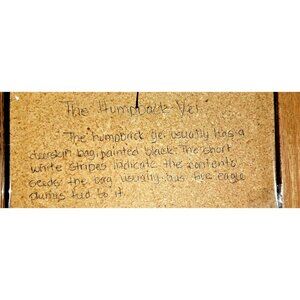 The Humpback Yei
The humpback yei usually has a
deerskin bag, painted black. The short
white stripes indicate the contents
seeds. the bag usually has five eagle
plumes tied to it.